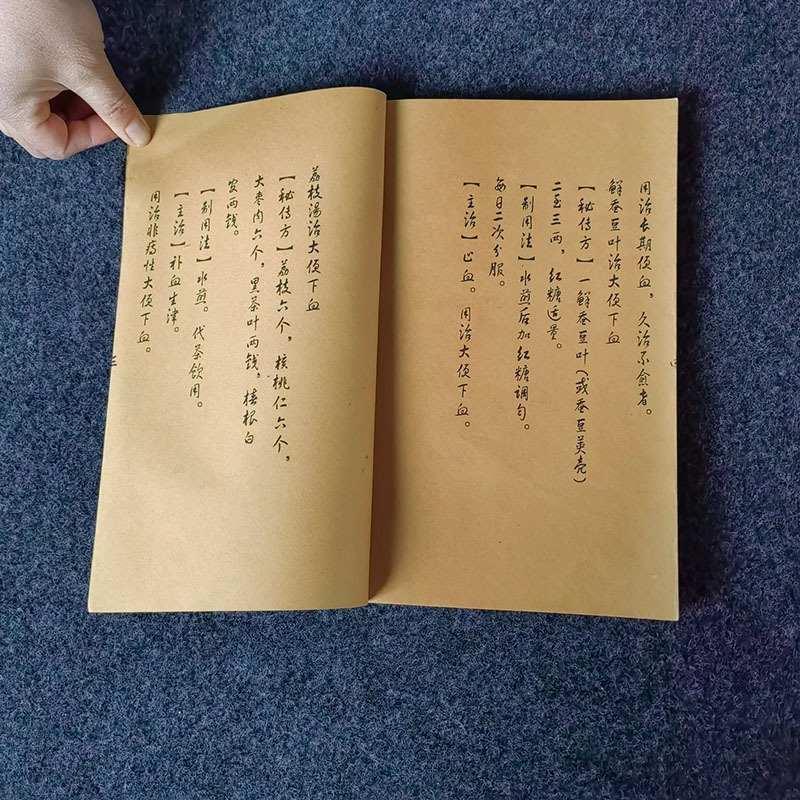 用治长期便血，久治不愈者。
鲜蚕豆叶治大便下血
【秘传方】一鲜蚕豆叶（或蚕豆荚壳）
二至三两，红糖适量。
【制用法】水煎后加红糖调匀。
每日二次分服。
【主治】止血。用治大便下血。
荔枝湯治大便下血
【秘传方】荔枝六个，核桃仁六个，
大枣肉六个，黑茶叶两钱，椿根白
皮两钱。
【制用法】水煎。代茶饮用。
【主治】补血生津。
用治非痔性大便下血。